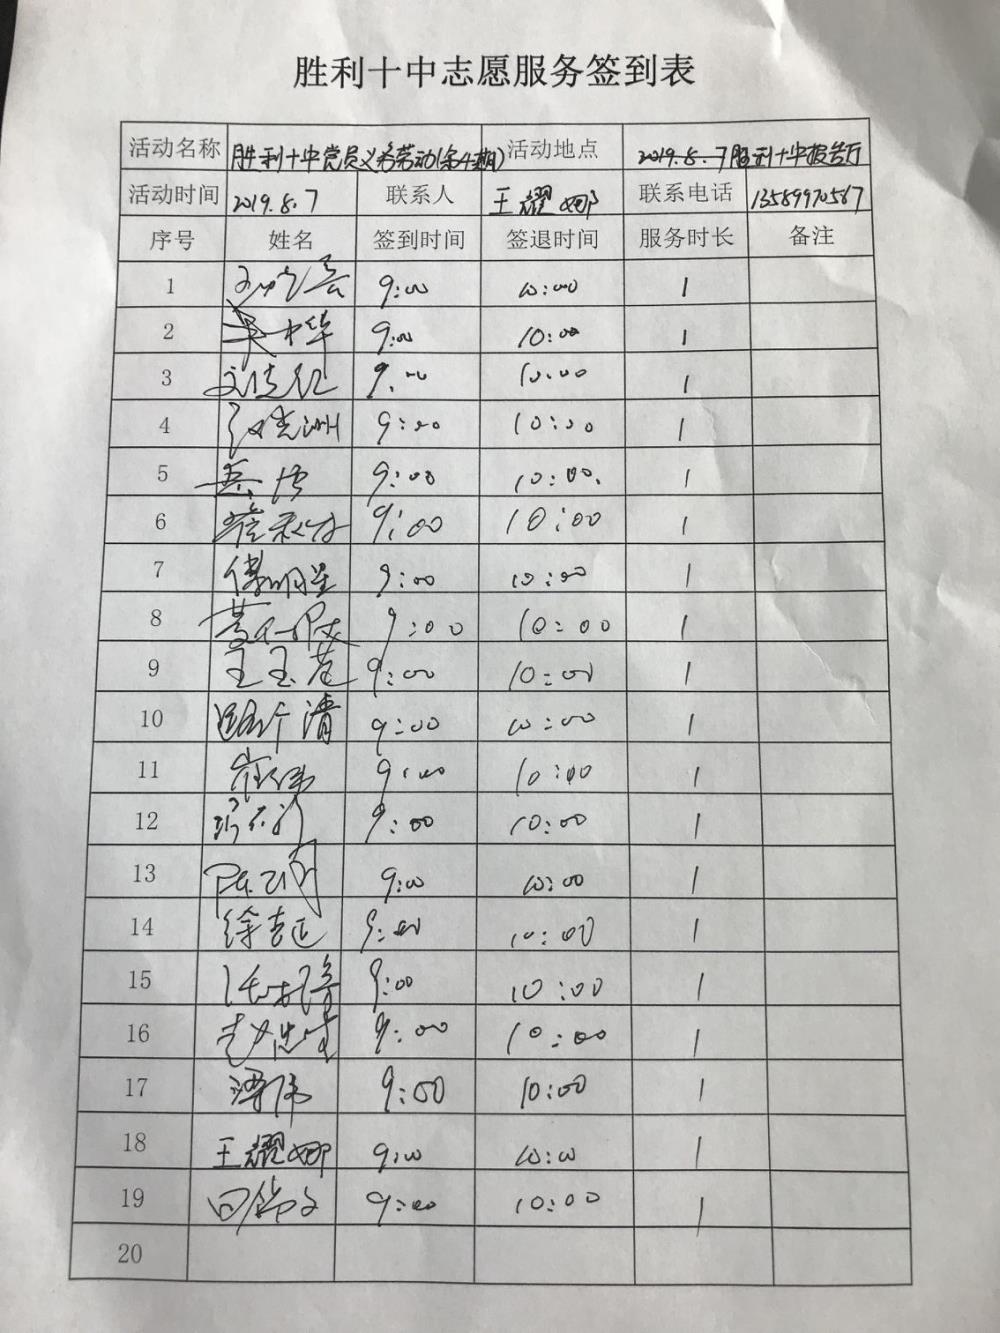 胜利十中志愿服务签到表
活动名称 胜利十中党员义务劳动(第4期) 活动地点 2019.8.7胜利十中报告厅
活动时间 2019.8.7 联系人 王耀娜 联系电话 13589970567
序号 姓名 签到时间 签退时间 服务时长 备注
1 9:00 10:00 1
2 吴中华 9:00 10:00 1
3 9:00 10:00 1
4 9:00 10:00 1
5 9:00 10:00 1
6 9:00 10:00 1
7 傅明星 9:00 10:00 1
8 9:00 10:00 1
9 王玉苍 9:00 10:00 1
10 9:00 10:00 1
11 崔伟 9:00 10:00 1
12 9:00 10:00 1
13 9:00 10:00 1
14 9:00 10:00 1
15 9:00 10:00 1
16 9:00 10:00 1
17 谭伟 9:00 10:00 1
18 王耀娜 9:00 10:00 1
19 9:00 10:00 1
20